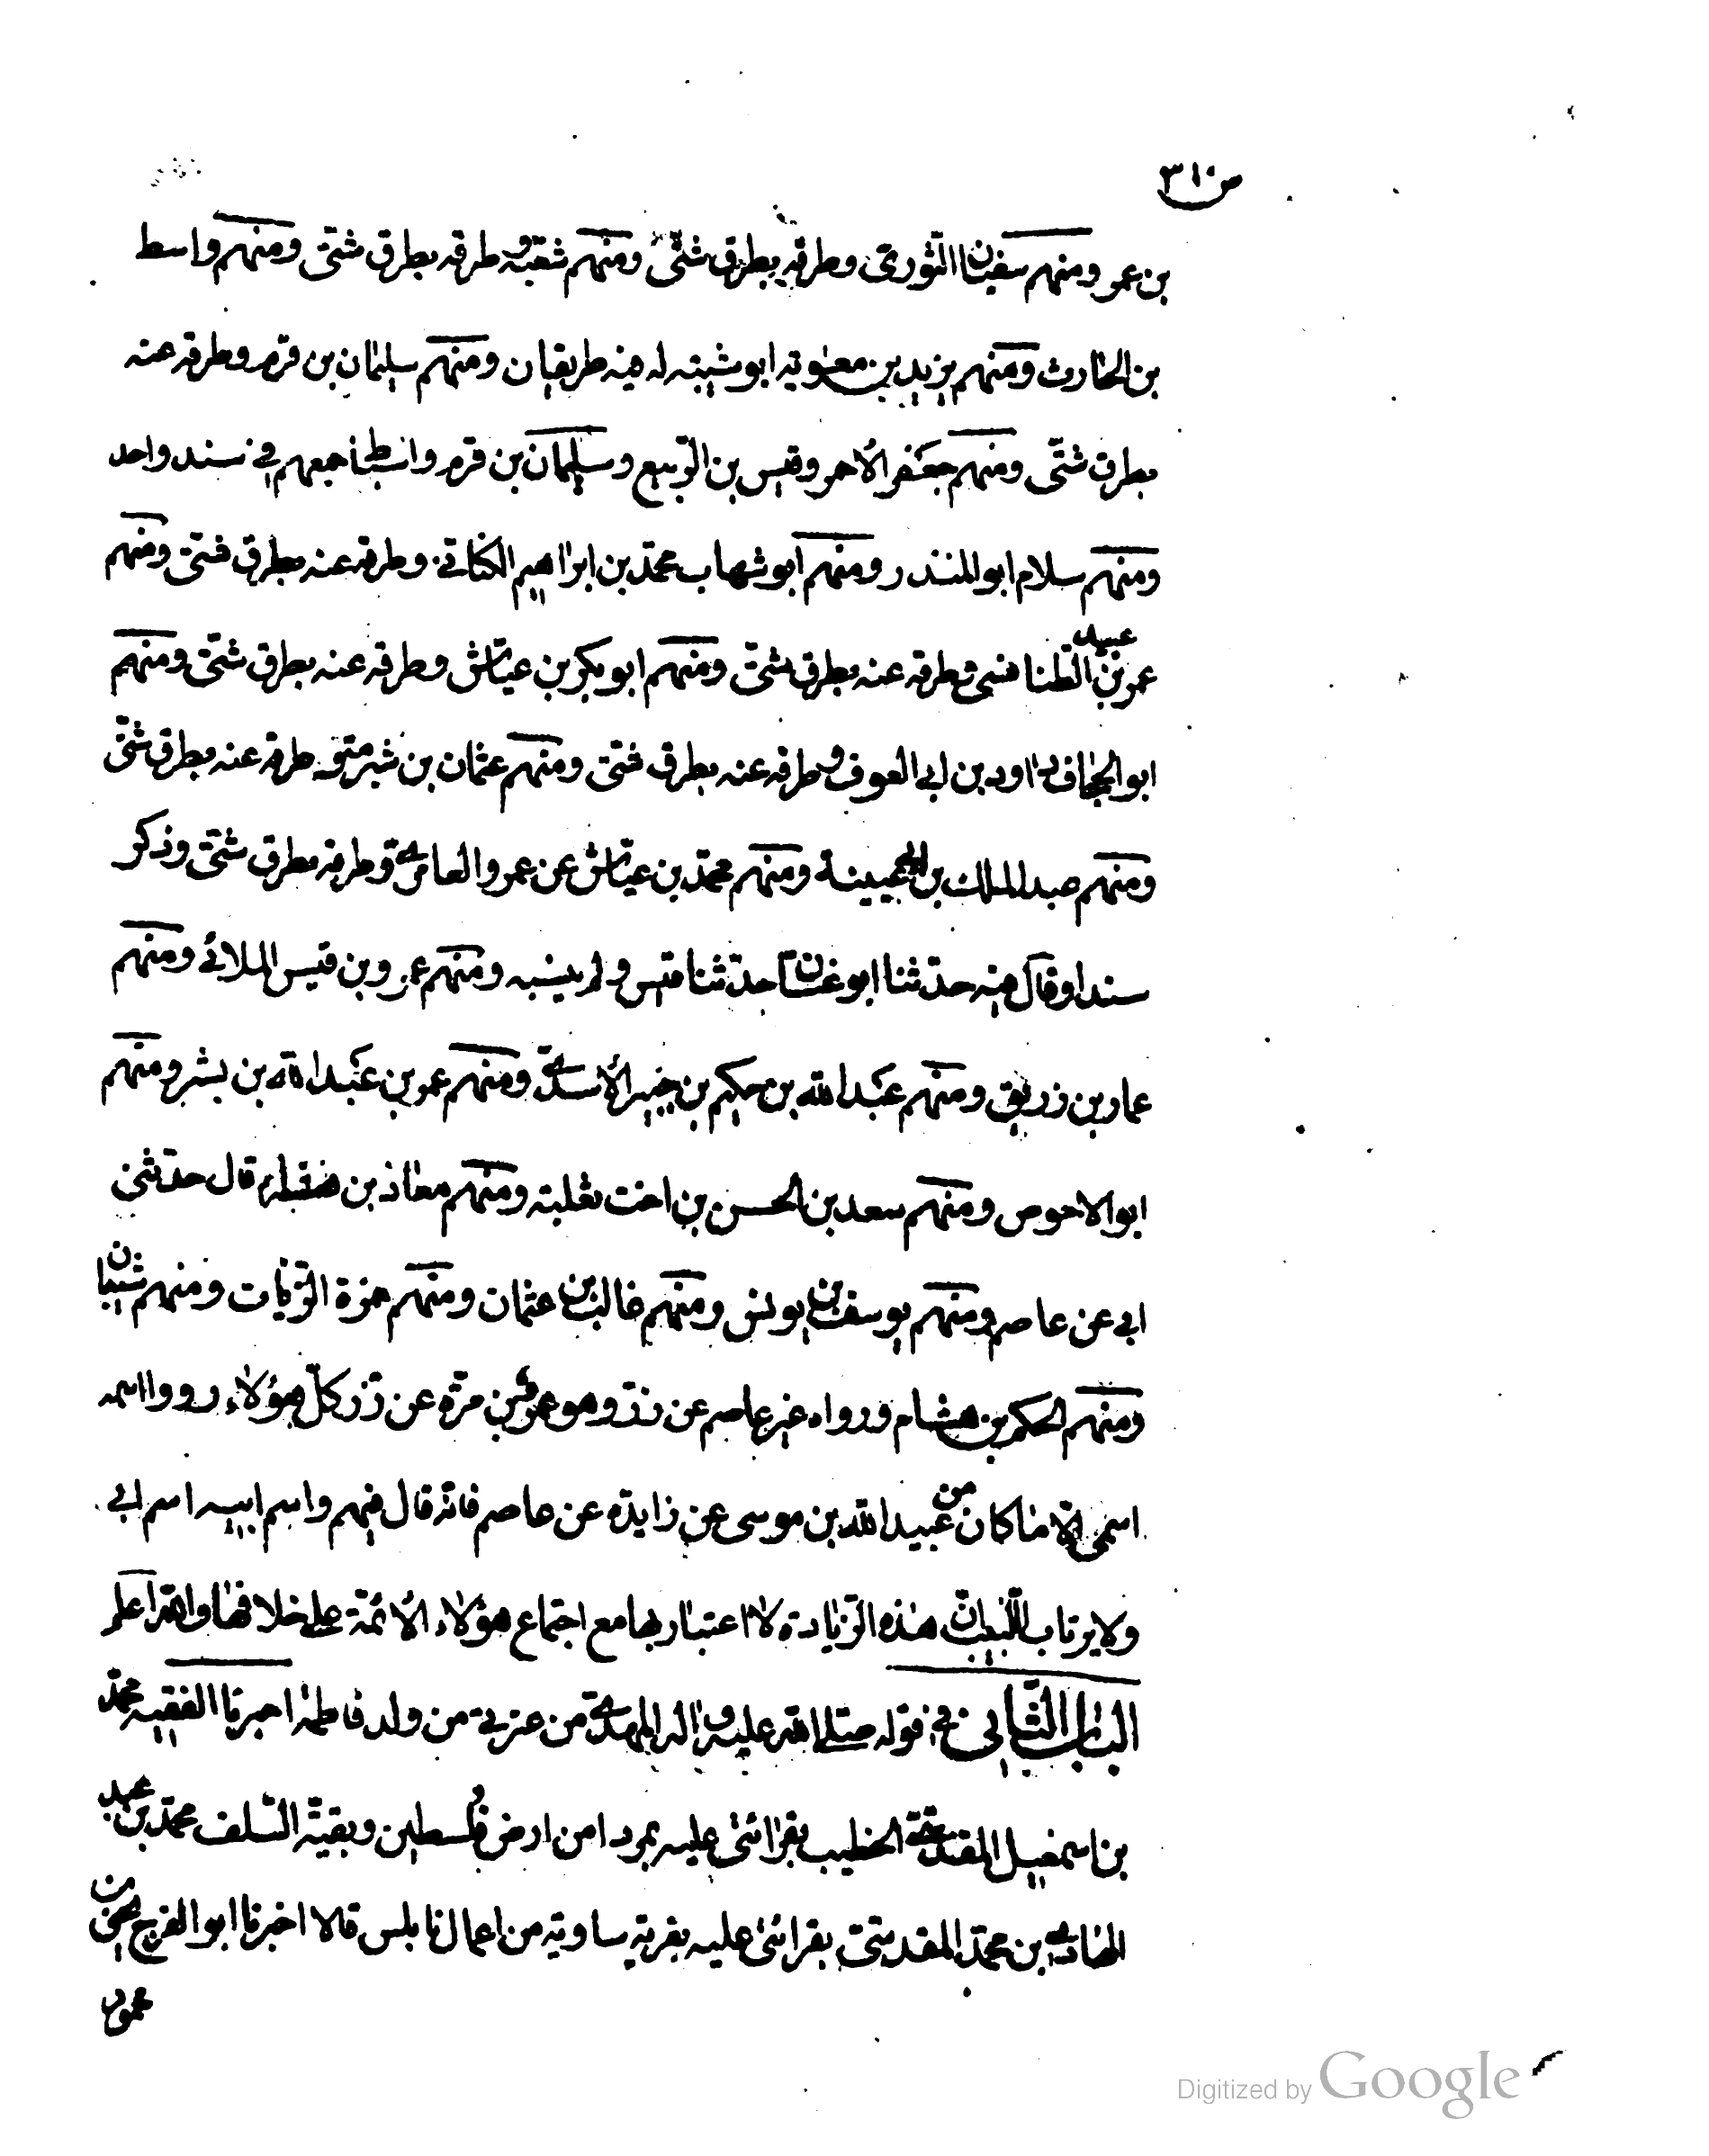 ص ٣١٠
بن عمر ومنهم سفين الثوري وطرقه بطرق شتى ومنهم شعبة وطرقه بطرق شتى ومنهم واسط
بن الحارث ومنهم يزيد بن معوية ابو شيبه له فيه طريقان ومنهم سليمان بن قرم وطرقه عنه
بطرق شتى ومنهم جعفر الاحمر وقيس بن الربيع وسليمان بن قرم واسباط جمعهم في سند واحد
ومنهم سلام ابو المنذر ومنهم ابو شهاب محمد بن ابراهيم الكناني وطرقه عنه بطرق شتى ومنهم
عمر بن عبيد الطنافسي وطرقه عنه بطرق شتى ومنهم ابو بكر بن عياش وطرقه عنه بطرق شتى ومنهم
ابو الجحاف داود بن ابي العوف وطرقه عنه بطرق شتى ومنهم عثمان بن شبرمة طرقه عنه بطرق شتى
ومنهم عبد الملك بن ابي عيينة ومنهم محمد بن عياش عن عمرو العامري وطرقه بطرق شتى وذكر
سندا وقال فيه حدثنا ابو غسان حدثنا قيس ولم ينسبه ومنهم عمرو بن قيس الملائي ومنهم
عمار بن زريق ومنهم عبد الله بن حكيم بن جبير الأسدي ومنهم عمر بن عبد الله بن بشر ومنهم
ابو الاحوص ومنهم سعد بن الحسن بن اخت ثعلبة ومنهم معاذ بن هشام قال حدثني
ابي عن عاصم ومنهم يوسف بن يونس ومنهم غالب بن عثمان ومنهم حمزة الزيات ومنهم شيبان
ومنهم الحكم بن هشام ورواه غير عاصم عن زر وهو عمرو بن مرة عن زر كل هؤلاء رووا اسمه
اسمي الا ما كان من عبيد الله بن موسى عن زايدة عن عاصم فانه قال فيهم واسم ابيه اسم ابي
ولا يرتاب اللبيب ان هذه الزيادة لا اعتبار بها مع اجتماع هؤلاء الأئمة على خلافها والله اعلم
الباب الثاني في قوله صلى الله عليه واله المهدي من عترتي من ولد فاطمة اخبرنا الفقيه محمد
بن اسمعيل المقدسي الخطيب بقرائتي عليه بمردا من ارض فلسطين وبقية السلف محمد بن عبد
الهادي بن محمد المقدسي بقرائتي عليه بقرية ساوية من اعمال نابلس قالا اخبرنا ابو الفرج يحيى بن
محمود
Digitized by Google